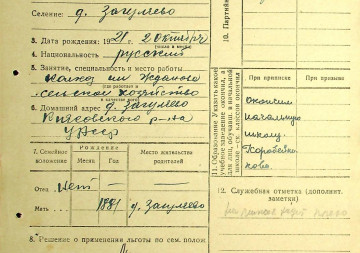 Селение: д. Загуляево
3. Дата рождения: 1921 2 Октября
(число и месяц)
4. Национальность русский
5. Занятие, специальность и место работы
колхоз им Жданова
(где работает и
сельское хозяйство
в качестве кого)
6. Домашний адрес д. Загуляево
р-на
УАССР
7. Семейное положение
Рождение
Месяц
Год
Место жительства родителей
Отец нет
Мать 1881 д. Загуляево
8. Решение о применении льготы по сем. полож.
10. Партийн
11. Образование Указать какое учебное заведение окончил, а для лиц, обучавш. в начальной школе — ск. классов окончил
При приписке
При призыве
окончил
начальную
школу
12. Служебная отметка (дополнит. заметки)